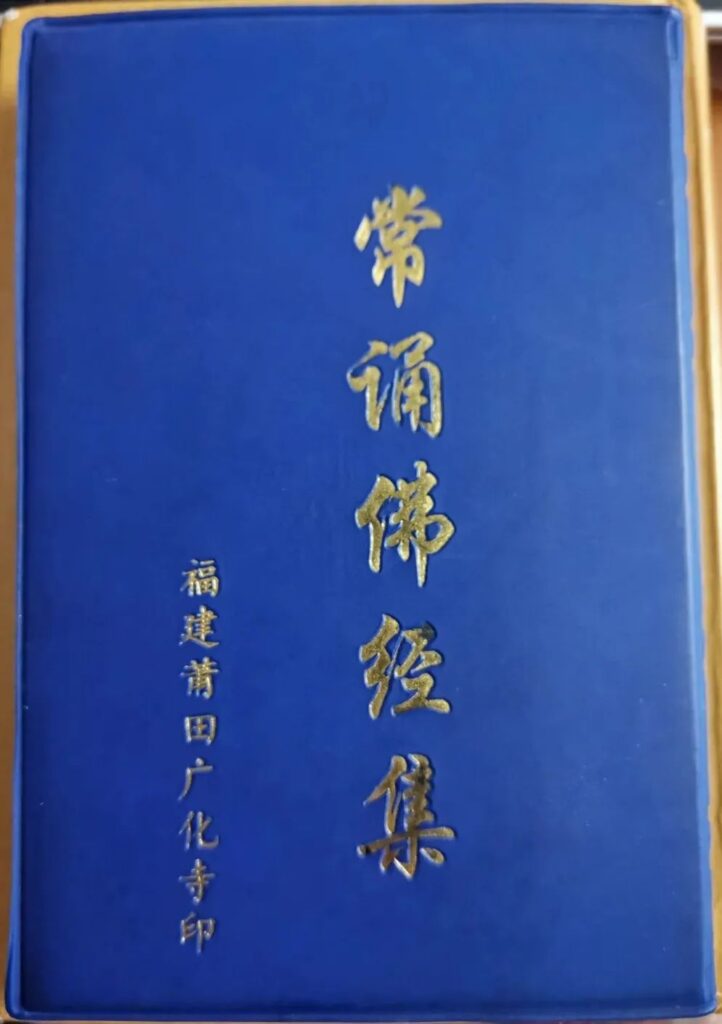 常诵佛经集
福建莆田广化寺印